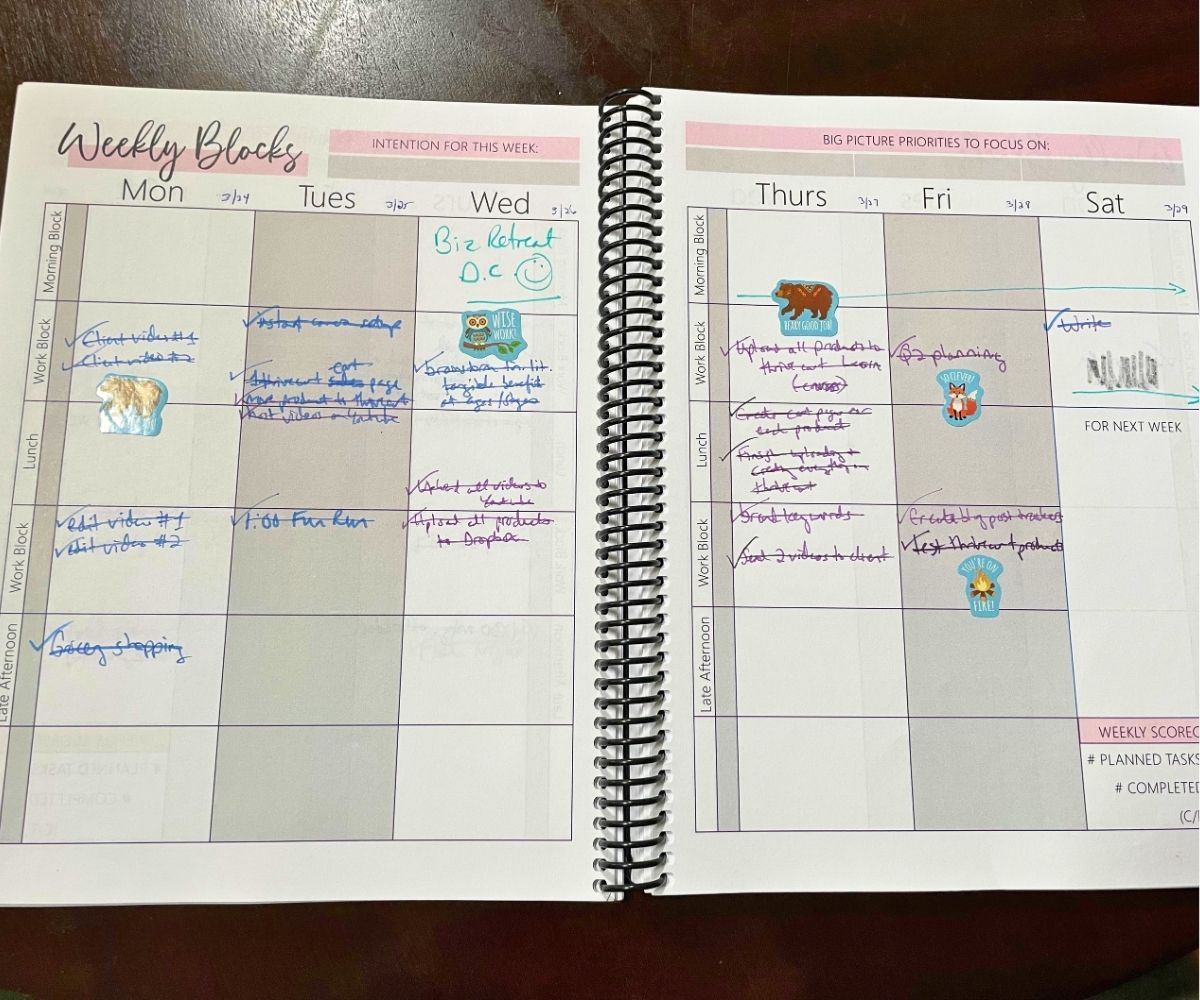 Weekly Blocks
INTENTION FOR THIS WEEK:
Mon 3/24
Tues 3/25
Wed 3/26
Morning Block
Biz Retreat
D.C
Work Block
Client video #1
Client video #2
Instant canva setup
cart
Thrivecart sales page
move product to thrivecart
Post videos on Youtube
WISE
WORK!
brainstorm
tangible benefit
Lunch
Upload all videos to
Youtube
Work Block
edit video #1
edit video #2
1:00 Fun Run
Upload all products
to Dropbox
Late Afternoon
Grocery shopping
BIG PICTURE PRIORITIES TO FOCUS ON:
Thurs 3/27
Fri 3/28
Sat 3/29
Morning Block
BEARY GOOD JOB!
Work Block
Upload all products to
thrive cart learn
(courses)
Q2 planning
SO CLEVER!
Write
Lunch
Create cart pages for
each product
Finish uploading +
creating everything in
thrivecart
FOR NEXT WEEK
Work Block
Send 2 videos to client
Create blog post
Test thrivecart products
YOU'RE ON
FIRE!
Late Afternoon
WEEKLY SCOREC
# PLANNED TASKS
# COMPLETED
(C/